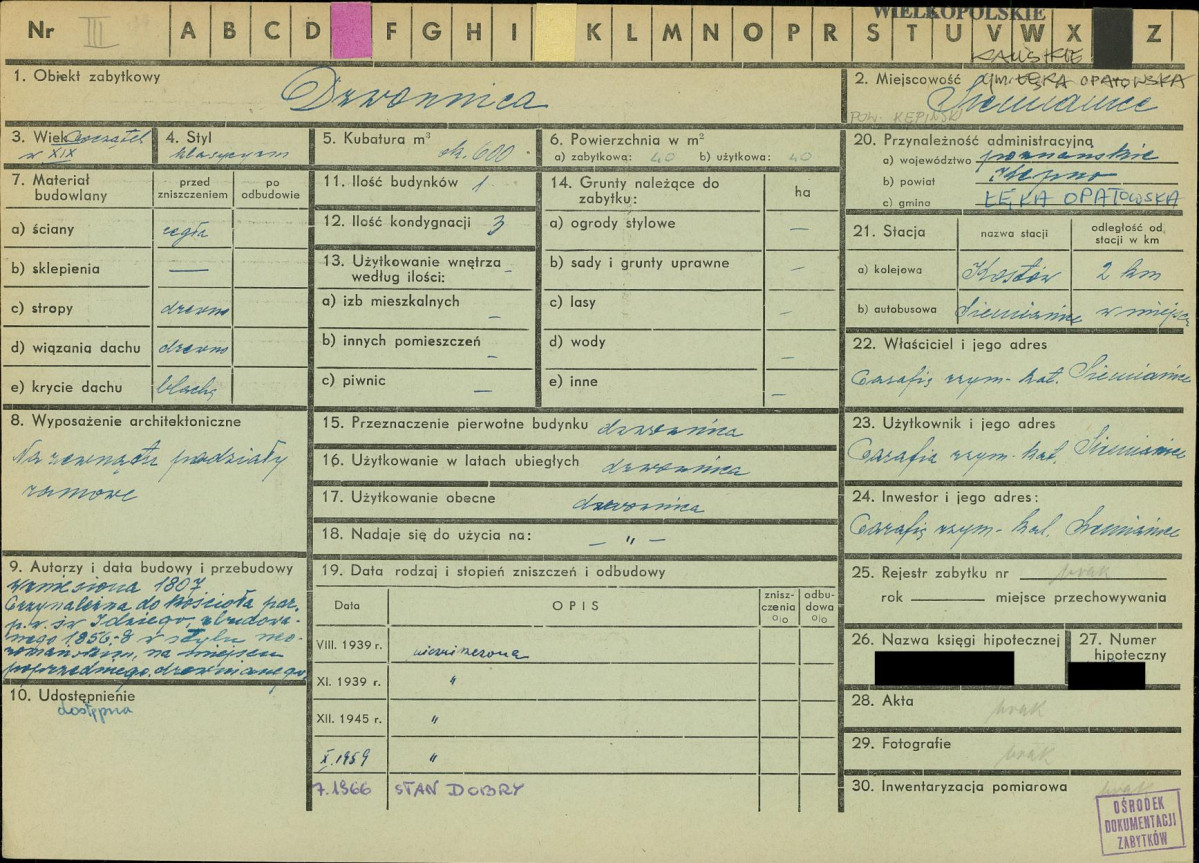 Nr III A B C D F G H I K L M N O P R S T U V W X Z
WIELKOPOLSKIE
KALISKIE
1. Obiekt zabytkowy
Dzwonnica
2. Miejscowość gm. ŁĘKA OPATOWSKA
Siemianice
POW. KĘPIŃSKI
3. Wiek początek
w XIX
4. Styl
klasycyzm
5. Kubatura m³
ok. 600
6. Powierzchnia w m²
a) zabytkowa: 40 b) użytkowa: 40
7. Materiał
budowlany
przed
zniszczeniem
po
odbudowie
a) ściany cegła
b) sklepienia —
c) stropy drewno
d) wiązania dachu drewno
e) krycie dachu blacha
8. Wyposażenie architektoniczne
Na zewnątrz podziały
ramowe
9. Autorzy i data budowy i przebudowy
wzniesiona 1807
Przynależna do kościoła par.
p.w. św Idziego, zbudowa-
nego 1856-8 w stylu neo-
romańskim, na miejscu
poprzedniego, drewnianego,
10. Udostępnienie
dostępna
11. Ilość budynków 1
12. Ilość kondygnacji 3
13. Użytkowanie wnętrza –
według ilości:
a) izb mieszkalnych –
b) innych pomieszczeń –
c) piwnic –
14. Grunty należące do
zabytku:
ha
a) ogrody stylowe –
b) sady i grunty uprawne –
c) lasy –
d) wody –
e) inne –
15. Przeznaczenie pierwotne budynku dzwonnica
16. Użytkowanie w latach ubiegłych dzwonnica
17. Użytkowanie obecne dzwonnica
18. Nadaje się do użycia na: – " –
19. Data rodzaj i stopień zniszczeń i odbudowy
Data OPIS
znisz-
czenia
%
odbu-
dowa
%
VIII. 1939 r. niezniszczona
XI. 1939 r. "
XII. 1945 r. "
X. 1959 "
7.1966 STAN DOBRY
20. Przynależność administracyjna
a) województwo poznańskie
b) powiat Kępno
c) gmina ŁĘKA OPATOWSKA
21. Stacja
nazwa stacji
odległość od
stacji w km
a) kolejowa Kostów 2 km
b) autobusowa Siemianice w miejscu
22. Właściciel i jego adres
Parafia rzym-kat. Siemianice
23. Użytkownik i jego adres
Parafia rzym-kat. Siemianice
24. Inwestor i jego adres:
Parafia rzym-kat. Siemianice
25. Rejestr zabytku nr brak
rok miejsce przechowywania
26. Nazwa księgi hipotecznej
27. Numer
hipoteczny
28. Akta brak
29. Fotografie brak
30. Inwentaryzacja pomiarowa brak
OŚRODEK
DOKUMENTACJI
ZABYTKÓW